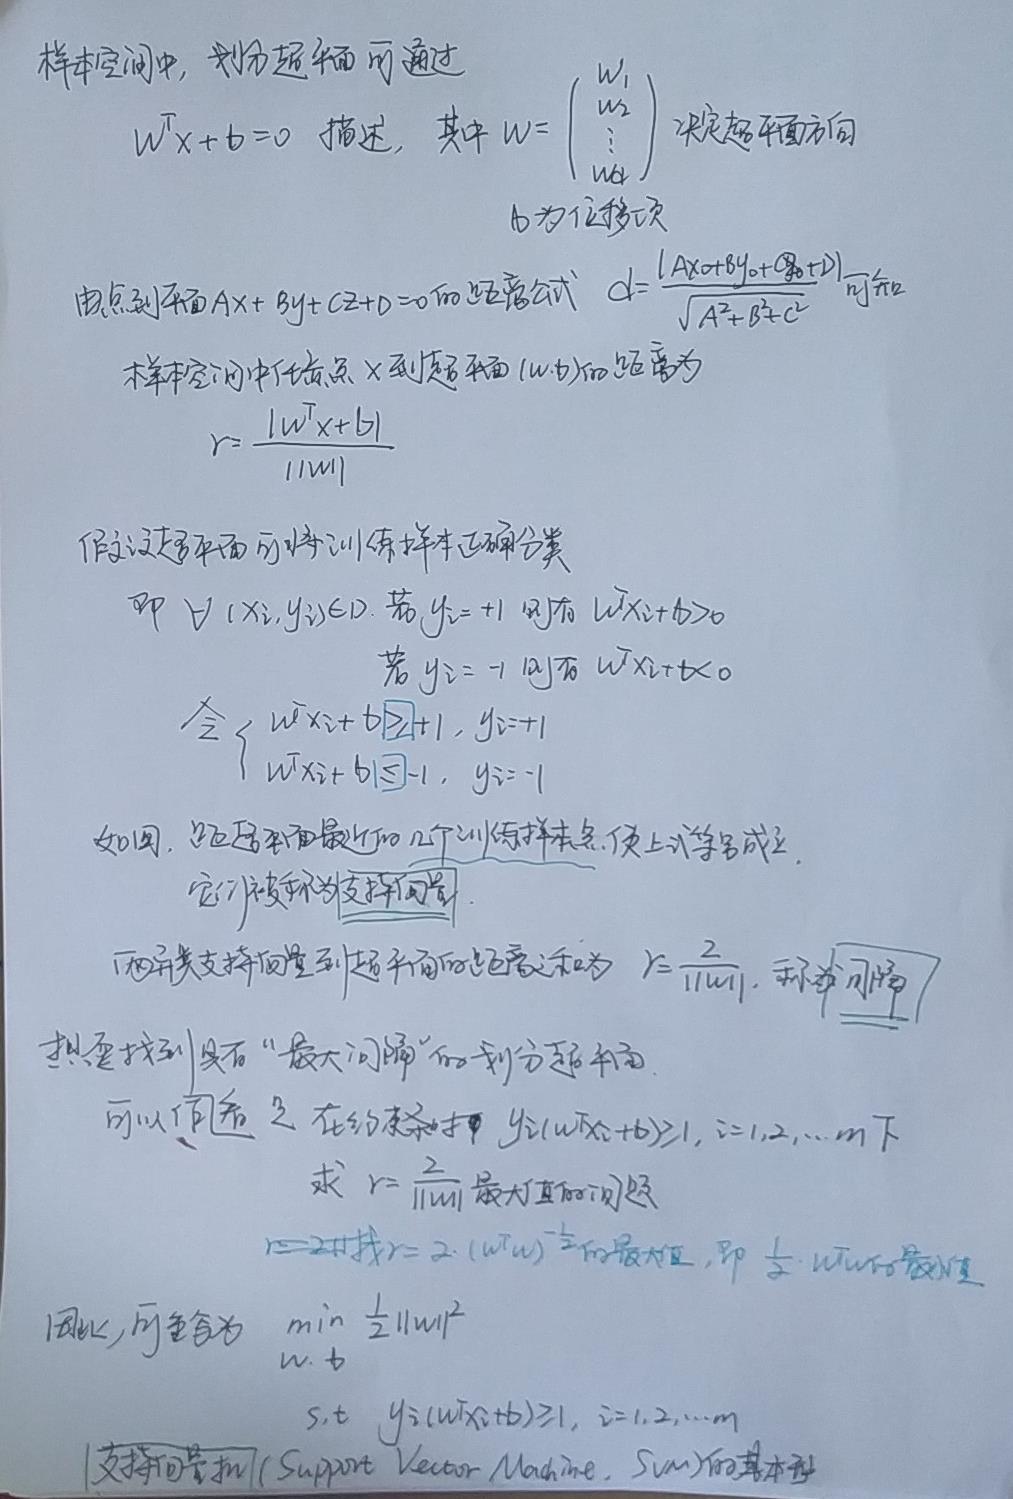 样本空间中, 划分超平面可通过
wᵀx+b=0 描述, 其中 w= (w₁ w₂ ⋮ wd) 决定超平面方向
b为位移项
由点到平面Ax+By+Cz+D=0的距离公式 d= |Ax₀+By₀+Cz₀+D| / √(A²+B²+C²) 可知
样本空间中任意点x到超平面(w.b)的距离为
r= |wᵀx+b| / ||w||
假设超平面可将训练样本正确分类
即 ∀(xi,yi)∈D. 若 yi=+1 则有 wᵀxi+b>0
若 yi=-1 则有 wᵀxi+b<0
令 { wᵀxi+b≥+1, yi=+1
wᵀxi+b≤-1, yi=-1
如图, 距超平面最近的几个训练样本点使上式等号成立,
它们被称为支持向量.
两异类支持向量到超平面的距离之和为 r= 2/||w||, 称为间隔
想要找到具有“最大间隔”的划分超平面.
可以 在约束条件 yi(wᵀxi+b)≥1, i=1,2,…m下
求 r= 2/||w|| 最大值的问题
找r=2·(wᵀw)^-½的最大值, 即 ½·wᵀw的最小值
因此, 可重写为 min ½||w||²
w.b
s.t yi(wᵀxi+b)≥1, i=1,2,…m
支持向量机 (Support Vector Machine, SVM)的基本型